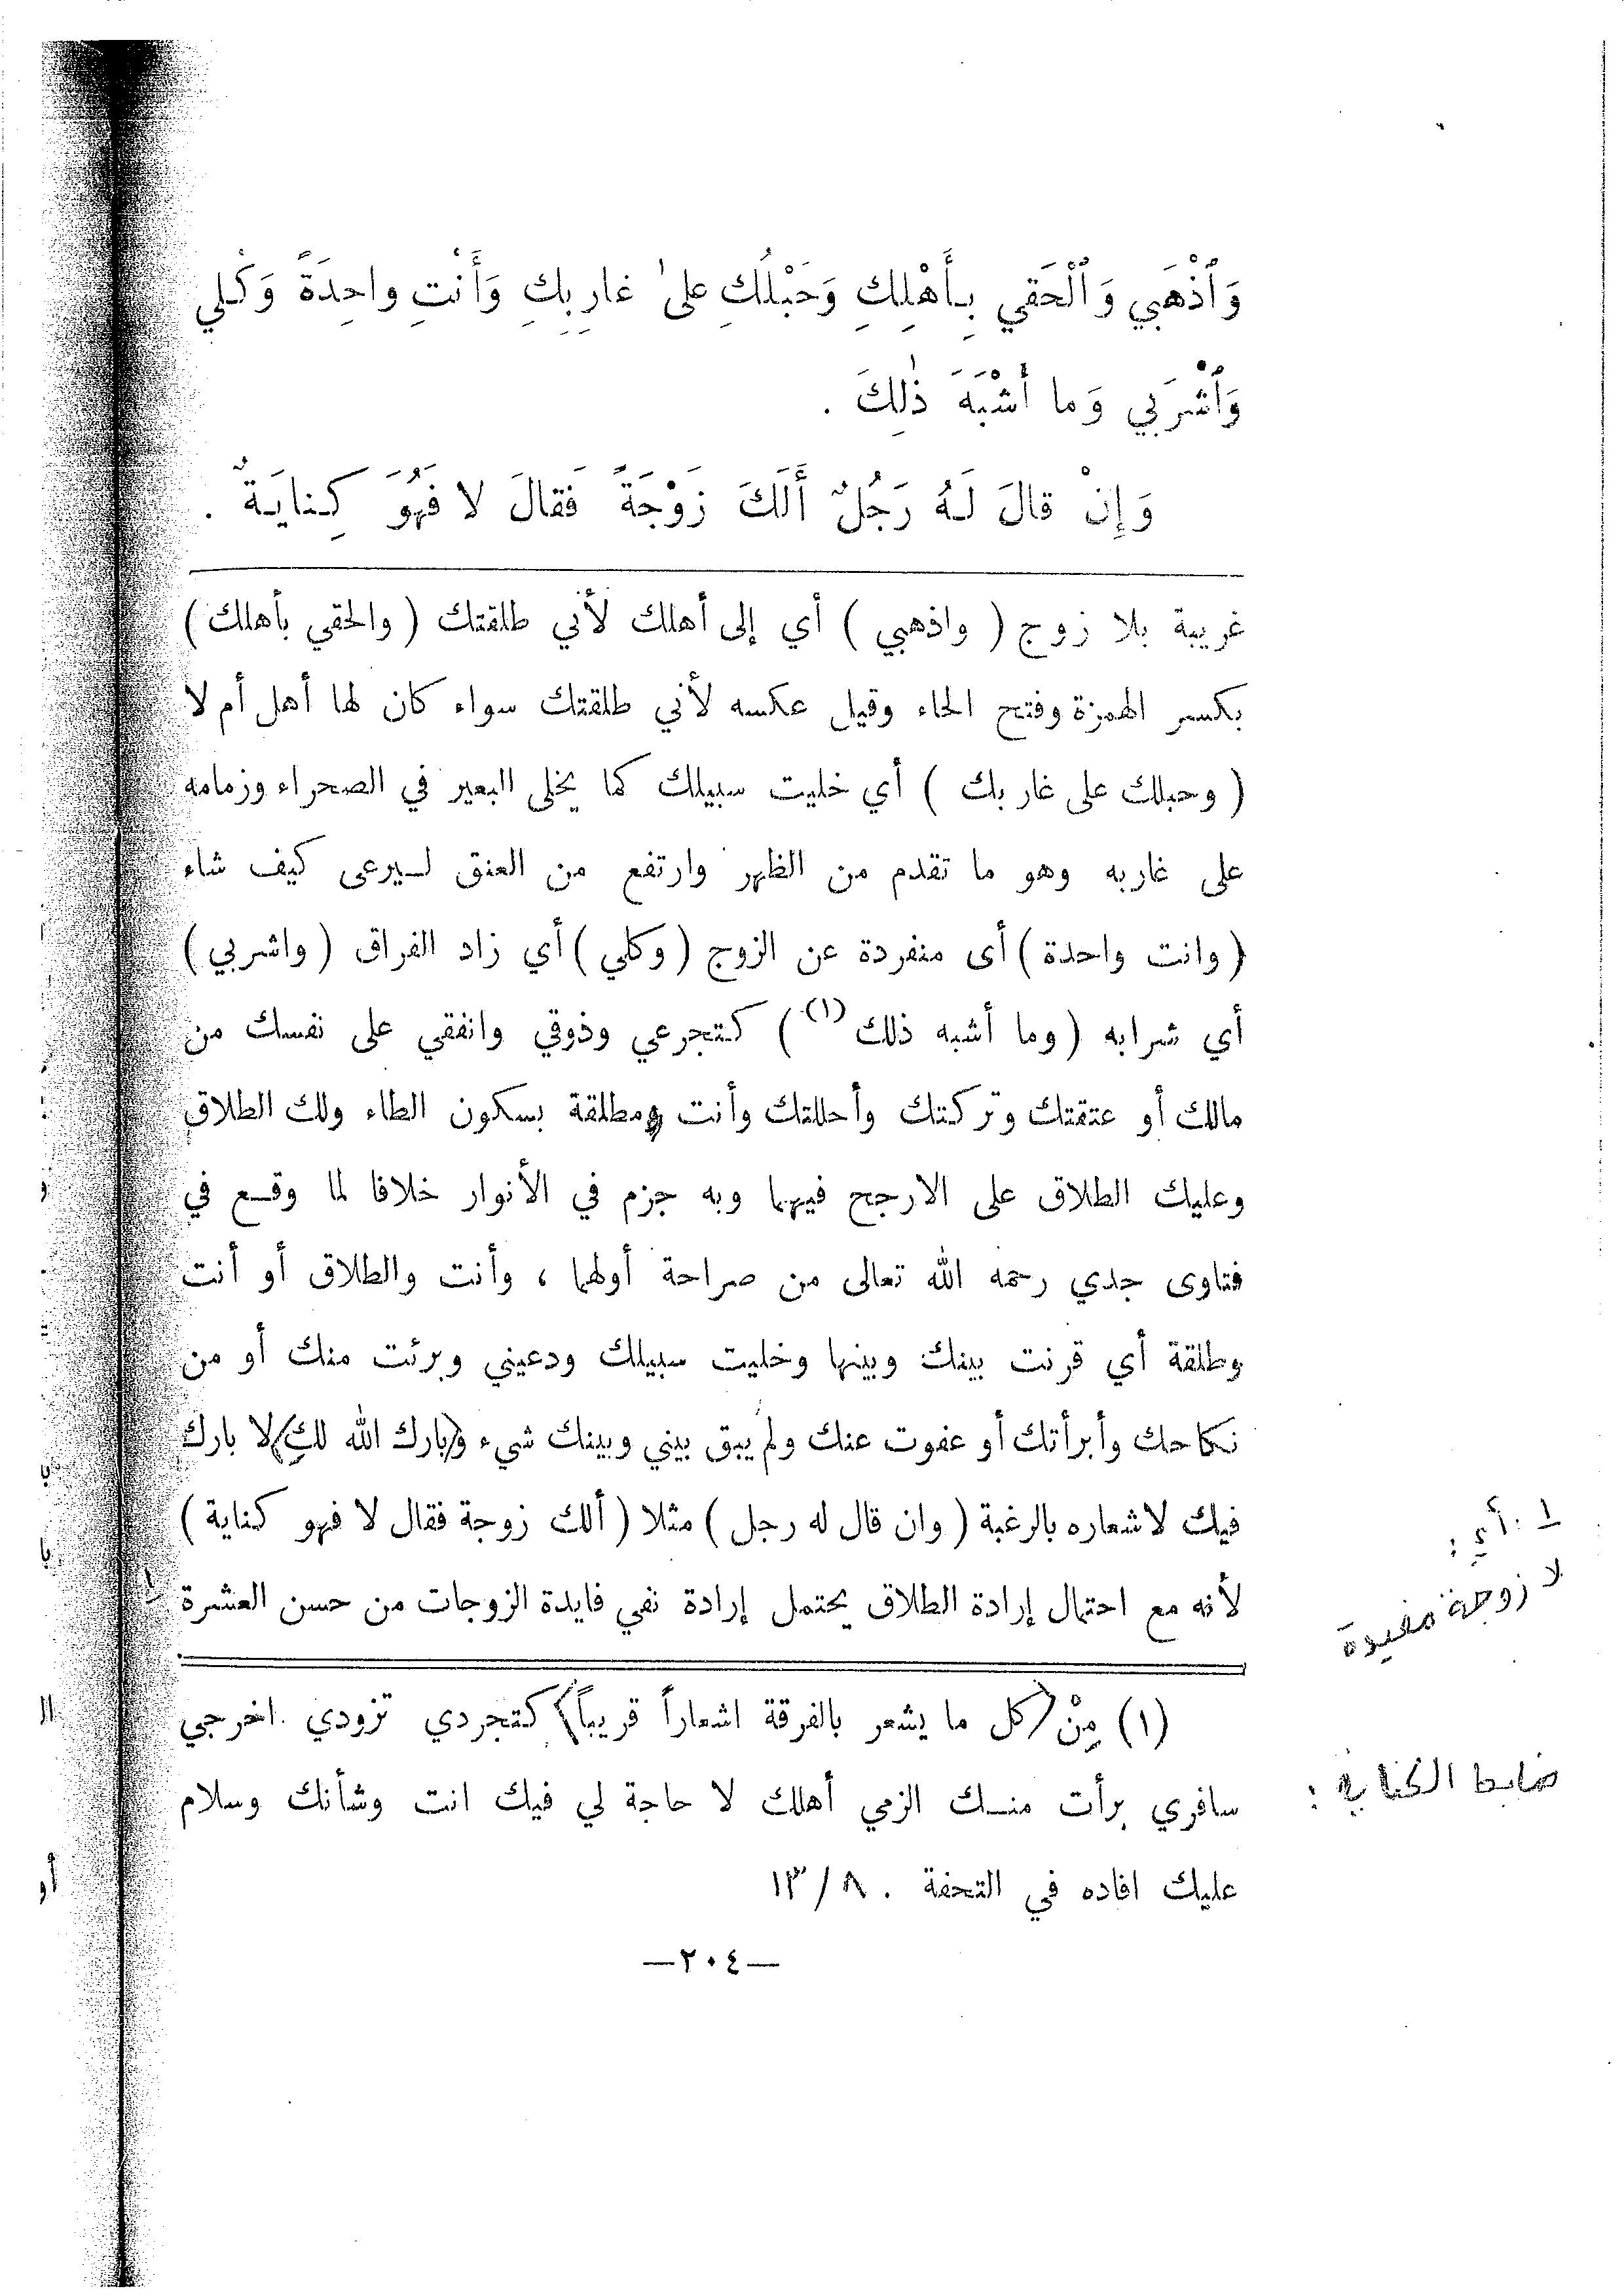 وَٱذْهَبي وَٱلْحَقي بِأَهْلِكِ وَحَبْلُكِ على غارِبِكِ وَأَنْتِ واحِدَةً وَكُلي
وَٱشْرَبي وَما أَشْبَهَ ذٰلِكَ .
وَإِنْ قالَ لَهُ رَجُلٌ أَلَكَ زَوْجَةً فَقالَ لا فَهُوَ كِنايَةٌ .
غريبة بلا زوج ( واذهبي ) أي إلى أهلك لأني طلقتك ( والحقي بأهلك )
بكسر الهمزة وفتح الحاء وقيل عكسه لأني طلقتك سواء كان لها أهل أم لا
( وحبلك على غاربك ) أي خليت سبيلك كما يخلى البعير في الصحراء وزمامه
على غاربه وهو ما تقدم من الظهر وارتفع من العنق ليرعى كيف شاء
( وانت واحدة ) أى منفردة عن الزوج ( وكلي ) أي زاد الفراق ( واشربي )
أي شرابه ( وما أشبه ذلك (١) ) كتجرعي وذوقي وانفقي على نفسك من
مالك أو عتقتك وتركتك وأحللتك وأنت ومطلقة بسكون الطاء ولك الطلاق
وعليك الطلاق على الارجح فيهما وبه جزم في الأنوار خلافا لما وقع في
فتاوى جدي رحمه الله تعالى من صراحة أولهما ، وأنت والطلاق أو أنت
وطلقة أي قرنت بينك وبينها وخليت سبيلك ودعيني وبرئت منك أو من
نكاحك وأبرأتك أو عفوت عنك ولم يبق بيني وبينك شيء و(بارك الله لكِ) لا بارك
فيك لاشعاره بالرغبة ( وان قال له رجل ) مثلا ( ألك زوجة فقال لا فهو كناية )
لأنه مع احتمال إرادة الطلاق يحتمل إرادة نفي فايدة الزوجات من حسن العشرة
١ . أي :
لا زوجة مفيدة
(١) مِنْ (كل ما يشعر بالفرقة اشعاراً قريباً) كتجردي تزودي اخرجي
سافري برأت منك الزمي أهلك لا حاجة لي فيك انت وشأنك وسلام
عليك افاده في التحفة . ٨/١٣
ضابط الكناية :
—٢٠٤—